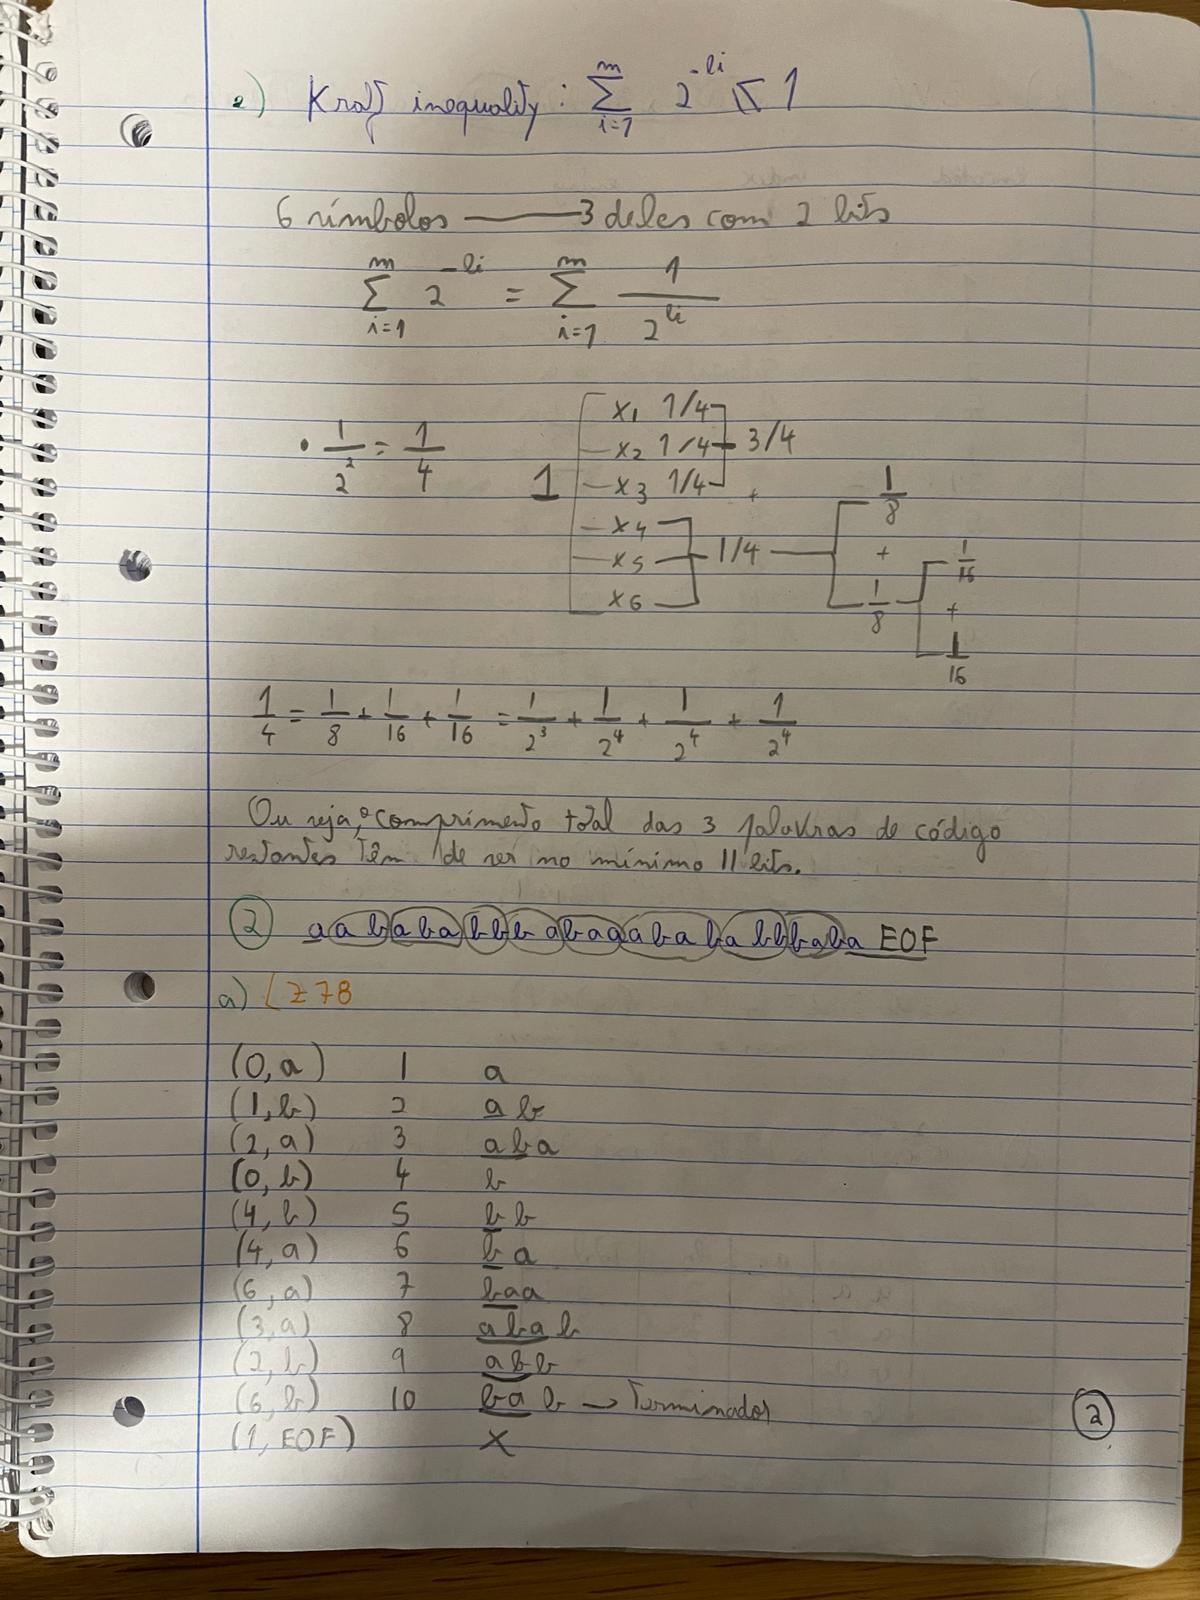 e) Kraft inequality: ∑_{i=1}^{m} 2^{-li} ≤ 1
6 símbolos —— 3 deles com 2 bits
∑_{i=1}^{m} 2^{-li} = ∑_{i=1}^{m} 1/2^{li}
• 1/2² = 1/4
1
x1 1/4
x2 1/4
x3 1/4
3/4
+
x4
x5
x6
1/4
1/8
+
1/8
1/16
+
1/16
1/4 = 1/8 + 1/16 + 1/16 = 1/2³ + 1/2⁴ + 1/2⁴ + 1/2⁴
Ou seja, o comprimento total das 3 palavras de código
restantes têm de ser no mínimo 11 bits.
② aabababbbabaaababab​bbaba EOF
a) LZ78
(0, a) 1 a
(1, b) 2 ab
(2, a) 3 aba
(0, b) 4 b
(4, b) 5 bb
(4, a) 6 ba
(6, a) 7 baa
(3, a) 8 abab
(2, b) 9 abb
(6, b) 10 bab → Terminador
(1, EOF) X
②